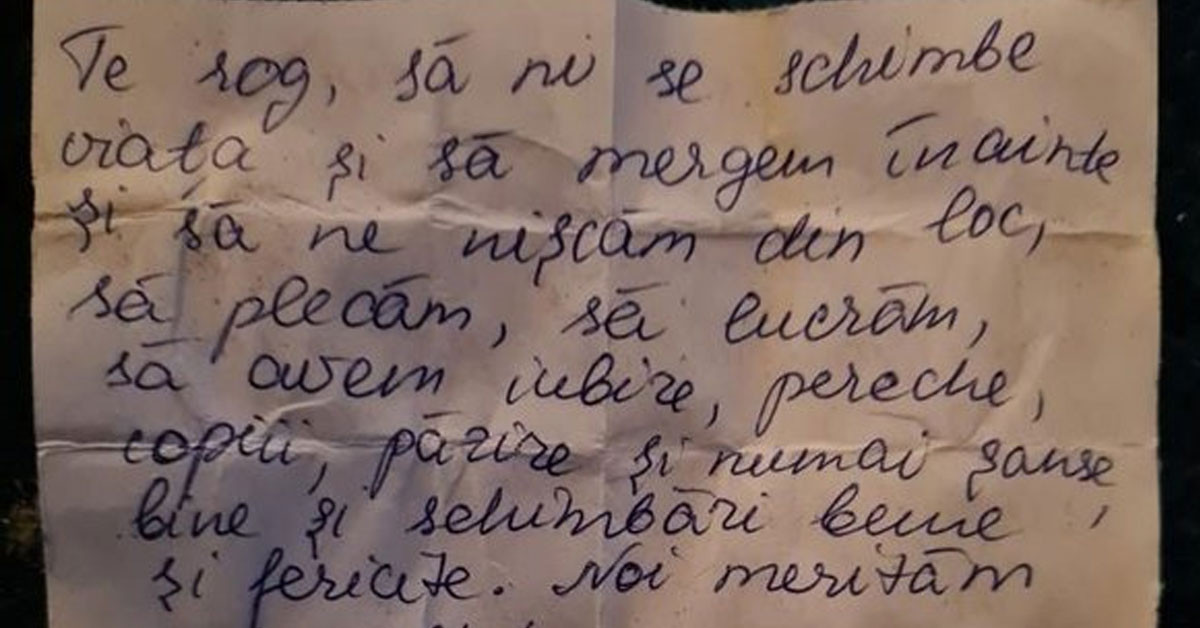 Te rog, să ni se schimbe
viața și să mergem înainte
și să ne mișcăm din loc,
să plecăm, să lucrăm,
să avem iubire, pereche,
copiii, părire și numai șanse,
bine și schimbări bune
și fericite. Noi merităm